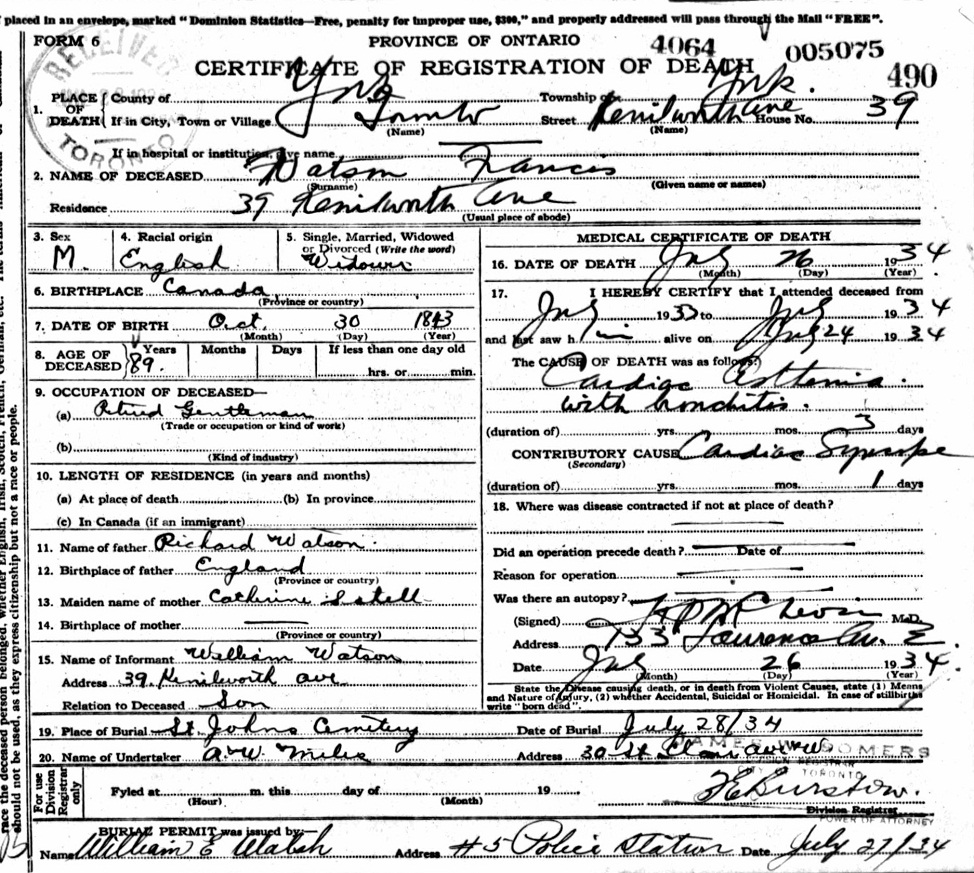 placed in an envelope, marked "Dominion Statistics—Free, penalty for improper use, $300," and properly addressed will pass through the Mail "FREE".
FORM 6 PROVINCE OF ONTARIO 4064 005075
CERTIFICATE OF REGISTRATION OF DEATH 490
RECEIVED TORONTO
1. PLACE OF DEATH County of York Township of York
If in City, Town or Village Toronto Street Kenilworth Ave House No. 39
(Name) (Name)
If in hospital or institution, give name
2. NAME OF DECEASED Watson Francis
(Surname) (Given name or names)
Residence 39 Kenilworth Ave
(Usual place of abode)
3. Sex M. 4. Racial origin English 5. Single, Married, Widowed or Divorced (Write the word) Widower
6. BIRTHPLACE Canada
(Province or country)
7. DATE OF BIRTH Oct. 30 1843
(Month) (Day) (Year)
8. AGE OF DECEASED Years 89. Months Days If less than one day old
hrs. or min.
9. OCCUPATION OF DECEASED—
(a) Retired Gentleman
(Trade or occupation or kind of work)
(b)
(Kind of industry)
10. LENGTH OF RESIDENCE (in years and months)
(a) At place of death (b) In province
(c) In Canada (if an immigrant)
11. Name of father Richard Watson.
12. Birthplace of father England
(Province or country)
13. Maiden name of mother Catherine
14. Birthplace of mother
(Province or country)
15. Name of Informant William Watson
Address 39. Kenilworth ave
Relation to Deceased Son
MEDICAL CERTIFICATE OF DEATH
16. DATE OF DEATH July 26 1934
(Month) (Day) (Year)
17. I HEREBY CERTIFY that I attended deceased from
July 1933 to July 1934
and last saw him alive on July 24 1934
The CAUSE OF DEATH was as follows:
Cardiac Asthenia.
with bronchitis.
(duration of) yrs. mos. 3 days
CONTRIBUTORY CAUSE Cardiac Syncope
(Secondary)
(duration of) yrs. mos. 1 days
18. Where was disease contracted if not at place of death?
Did an operation precede death? Date of
Reason for operation
Was there an autopsy?
(Signed) M.D.
Address 133 Lawrence Av. E
Date July 26 1934.
(Month) (Day) (Year)
State the Disease causing death, or in death from Violent Causes, state (1) Means
and Nature of Injury, (2) whether Accidental, Suicidal or Homicidal. In case of stillbirths
write "born dead".
19. Place of Burial St. Johns Cemetery Date of Burial July 28/34
20. Name of Undertaker A. W. Miles Address 30 St Clair av W
SOMERS
REGISTRAR
TORONTO
For use Division Registrar only
Fyled at m. this day of 19
(Hour) (Month)
F E Burstow.
Division Registrar
POWER OF ATTORNEY
BURIAL PERMIT was issued by—
Name William E Walsh Address #5 Police Station Date July 27/34
race the deceased person belonged, whether English, Irish, Scotch, French, German, etc.
should not be used, as they express citizenship but not a race or people.